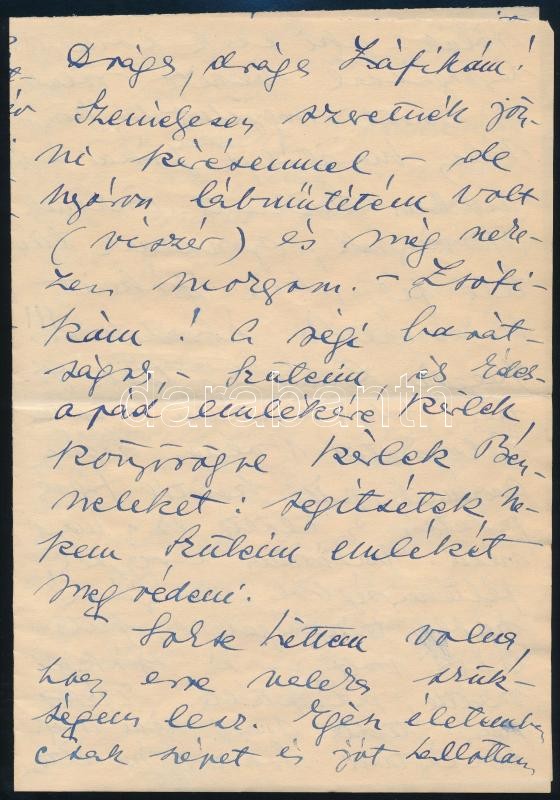 Drága, drága Zsófikám!
Személyesen szeretnék jön-
ni kérésemmel – de
nyáron lábműtétem volt
(viszér) és még nehe-
zen mozgom. – Zsófi-
kám! A régi barát-
ságra – Szüleim és Édes-
apád emlékére kérlek,
könyörögve kérlek Ben-
neteket: segítsetek ne-
kem Szüleim emlékét
megvédeni.
Sohse hittem volna,
hogy erre valaha szük-
ségem lesz. Egész életemben
csak szépet és jót hallottam
darabanth